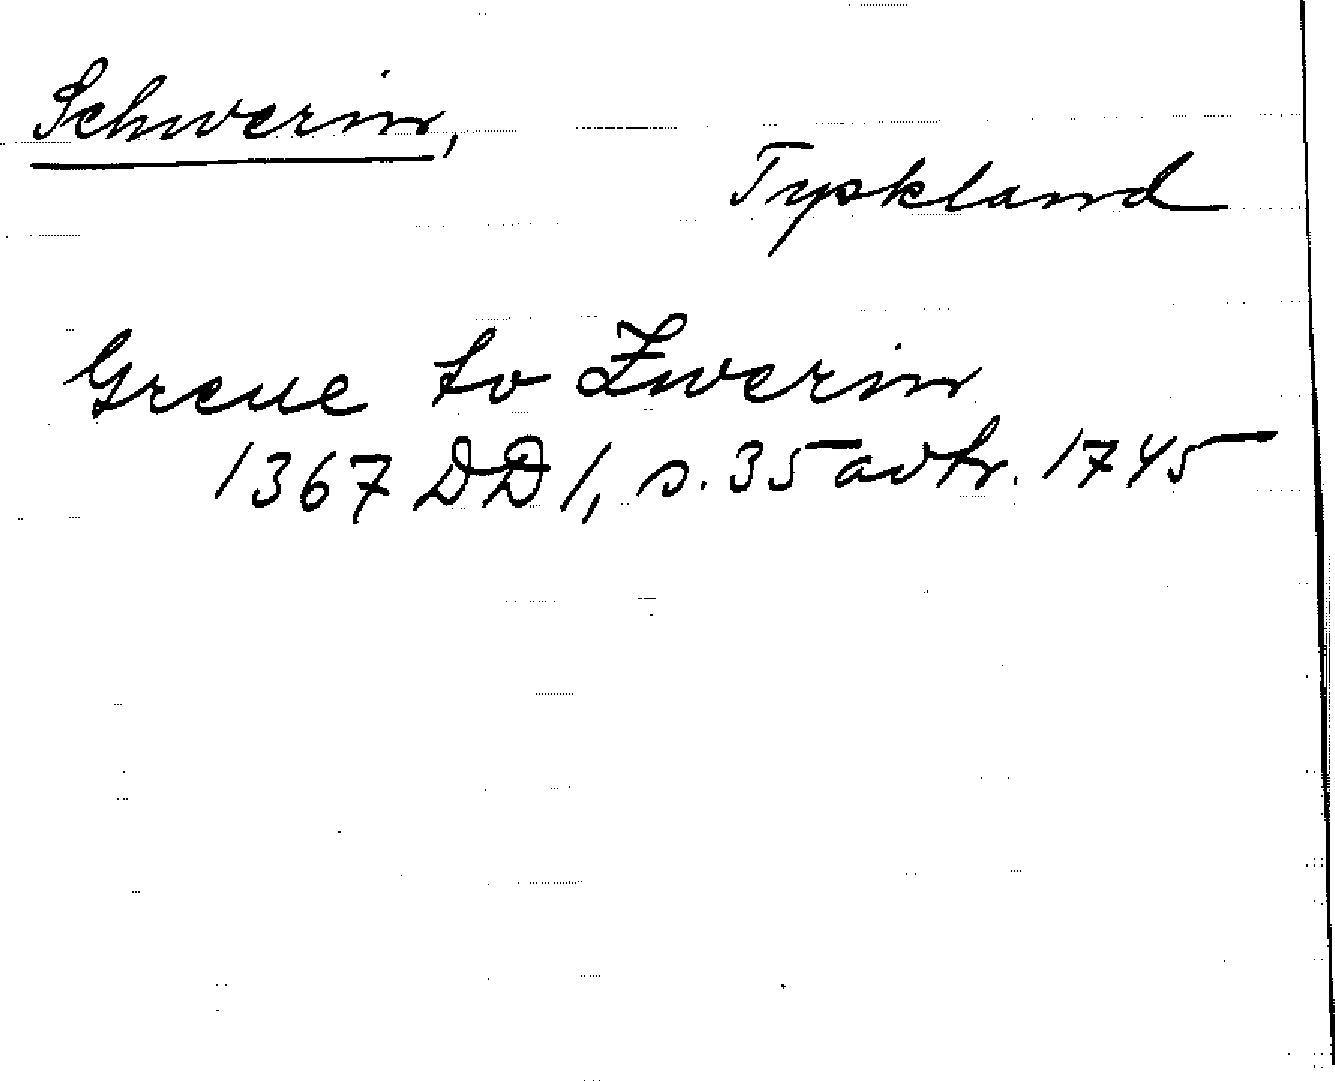 Schwerin,
Tyskland
Greue to Zwerin
1367 DD 1, s. 35 avtr. 1745